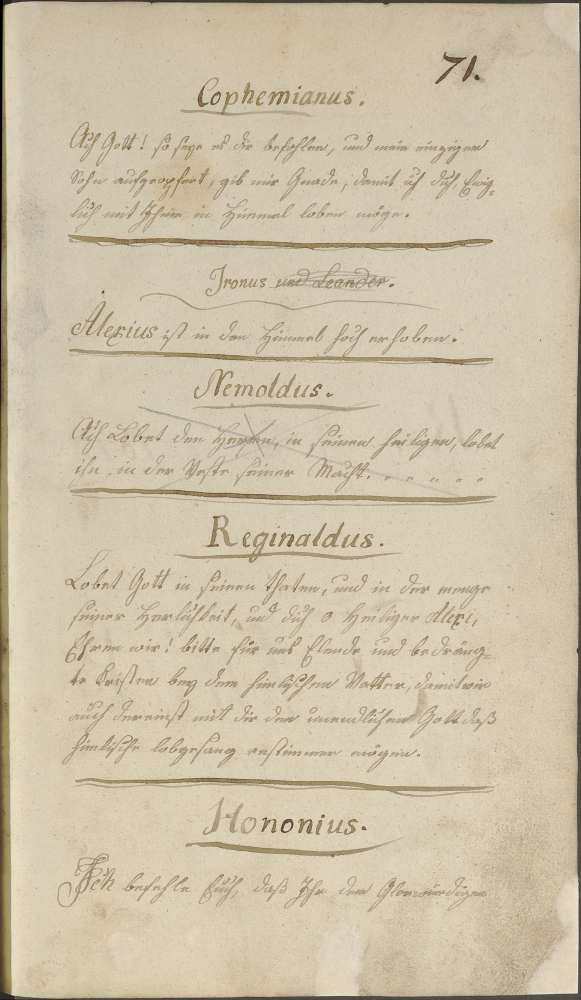 71.
Cophemianus.
Ach Gott! so seye es dir befohlen, und mein einziger
Sohn aufgeopfert, gib mir Gnade, damit ich dich, Ewig-
lich mit Ihm in Himmel loben möge.
Ironus und Leander.
Alexius ist in den Himmel hoch erhoben.
Nemoldus.
Ach Lobet den Herren, in seinen heiligen, lobet
ihn, in der Veste seiner Macht. . . . . .
Reginaldus.
Lobet Gott in seinen thaten, und in der menge
seiner Herlichkeit, und dich o Heiliger Alexi,
Ehren wir! bitte für uns Elende und bedräng-
te Kristen bey dem himlischen Vatter, damit wir
auch dereinst mit dir den unendlichen Gott daß
himlische lobgesang anstimmen mögen.
Hononius.
Ich befehle Euch, daß Ihr den Glorwürdigen